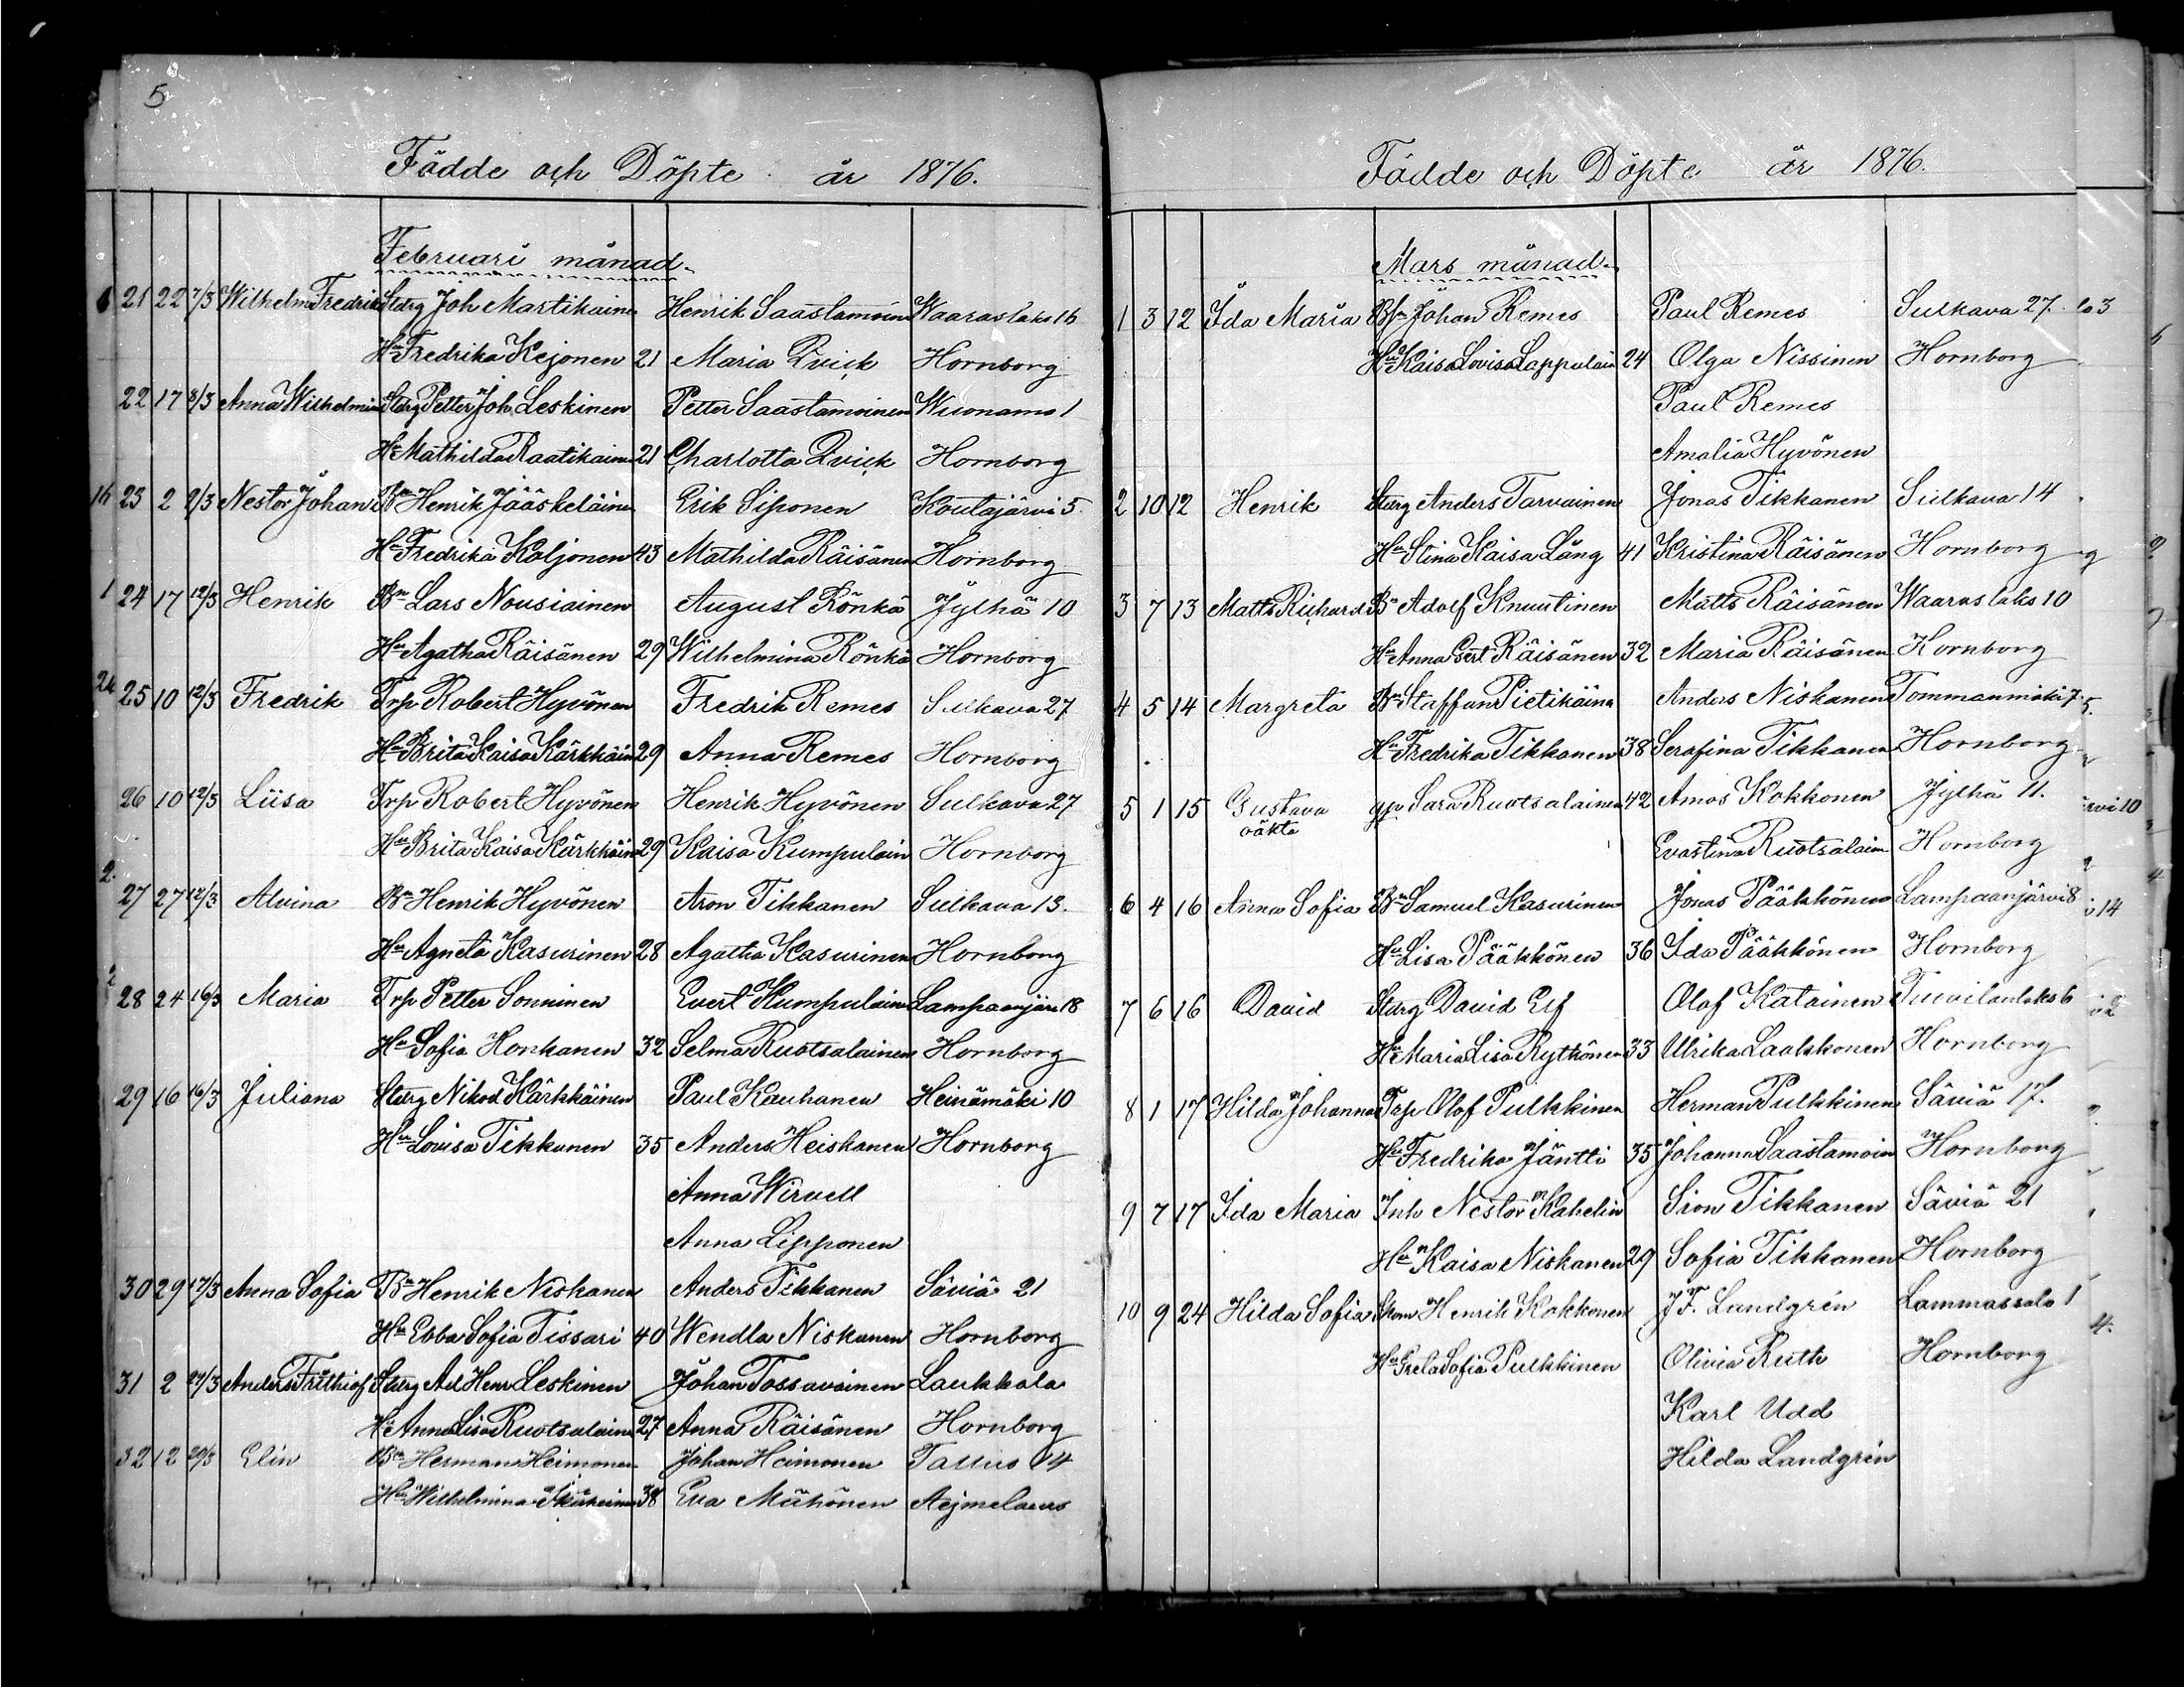 5
Födde och Döpte år 1876.
Februari månad.
21 22 7/3 Wilhelm Fredrik Sterg Joh Martikainen Henrik Saastamoinen Waaraslaks 16
Hu Fredrika Kejonen 21 Maria Qvick Hornborg
22 17 8/3 Anna Wilhelmina Sterg Petter Joh. Leskinen Petter Saastamoinen Wuonamo 1
Hu Mathilda Raatikainen 21 Charlotta Qvick Hornborg
23 2 9/3 Nestor Johan Bn Henrik Jääskeläinen Erik Siponen Koutajärvi 5.
Hu Fredrika Koljonen 43 Mathilda Räisänen Hornborg
24 17 12/3 Henrik Bn Lars Nousiainen August Rönkä Jylhä 10
Hu Agatha Räisänen 29 Wilhelmina Rönkä Hornborg
25 10 12/3 Fredrik Trp Robert Hyvönen Fredrik Remes Sulkava 27
Hu Brita Kaisa Kärkkäin 29 Anna Remes Hornborg
26 10 12/3 Liisa Trp Robert Hyvönen Henrik Hyvönen Sulkava 27
Hu Brita Kaisa Kärkkäin 29 Kaisa Kumpulain Hornborg
27 27 12/3 Alvina Bn Henrik Hyvönen Aron Tikkanen Sulkava 13.
Hu Agneta Kasurinen 28 Agatha Kasurinen Hornborg
28 24 16/3 Maria Trp Petter Sonninen Evert Kumpulainen Lampaanjärvi 18
Hu Sofia Honkanen 32 Selma Ruotsalainen Hornborg
29 16 16/3 Juliana Sterg Nikod Kärkkäinen Paul Kauhanen Heinämäki 10
Hu Lovisa Tikkanen 35 Anders Heiskanen Hornborg
Anna Wirvell
Anna Lipponen
30 29 17/3 Anna Sofia Bn Henrik Niskanen Anders Tikkanen Säviä 21
Hu Ebba Sofia Tissari 40 Wendla Niskanen Hornborg
31 2 Anders Frithiof Sterg Ad Henr Leskinen Johan Tossavainen Laukkala
Hu Anna Lisa Ruotsalainen 27 Anna Räisänen Hornborg
32 12 Elin Bn Herman Heimonen Johan Heimonen Tallus 14
Hu Wilhelmina 38 Eva Mähönen Aejmelaeus
Födde och Döpte år 1876.
Mars månad.
1 3 12 Ida Maria Bsn Johan Remes Paul Remes Sulkava 27.
Hu Kaisa Lovisa Lappalain 24 Olga Nissinen Hornborg
Paul Remes
Amalia Hyvönen
2 10 12 Henrik Sterg Anders Tarvainen Jonas Tikkanen Sulkava 14
Hu Stina Kaisa Lång 41 Kristina Räisänen Hornborg
3 7 13 Matts Richard Bn Adolf Knuutinen Matts Räisänen Waaraslaks 10
Hu Anna Gert Räisänen 32 Maria Räisänen Hornborg
4 5 14 Margreta Bn Staffan Pietikäinen Anders Niskanen Tommanmäki 7
Hu Fredrika Tikkanen 38 Serafina Tikkanen Hornborg
5 1 15 Gustava gp. Sara Ruotsalainen 42 Amos Kokkonen Jylhä 11.
oäkta Evastina Ruotsalain Hornborg
6 4 16 Anna Sofia Bn Samuel Kasurinen Jonas Pääkkönen Lampaanjärvi 8
Hu Lisa Pääkkönen 36 Ida Pääkkönen Hornborg
7 6 16 David Sterg David Elf Olof Katainen Tuovilanlaks 6
Hu Maria Lisa Rytkönen 33 Ulrika Laakkonen Hornborg
8 1 17 Hilda Johanna Trp Olof Pulkkinen Herman Pulkkinen Säviä 17.
Hu Fredrika Jäntti 35 Johanna Saastamoin Hornborg
9 7 17 Ida Maria Inh Nestor Kahelin Sion Tikkanen Säviä 21
Hu Kaisa Niskanen 29 Sofia Tikkanen Hornborg
10 9 24 Hilda Sofia Skom Henrik Kokkonen J F. Landgrén Lammassalo 1
Hu Greta Sofia Pulkkinen Olivia Ruth Hornborg
Karl Udd
Hilda Landgrén